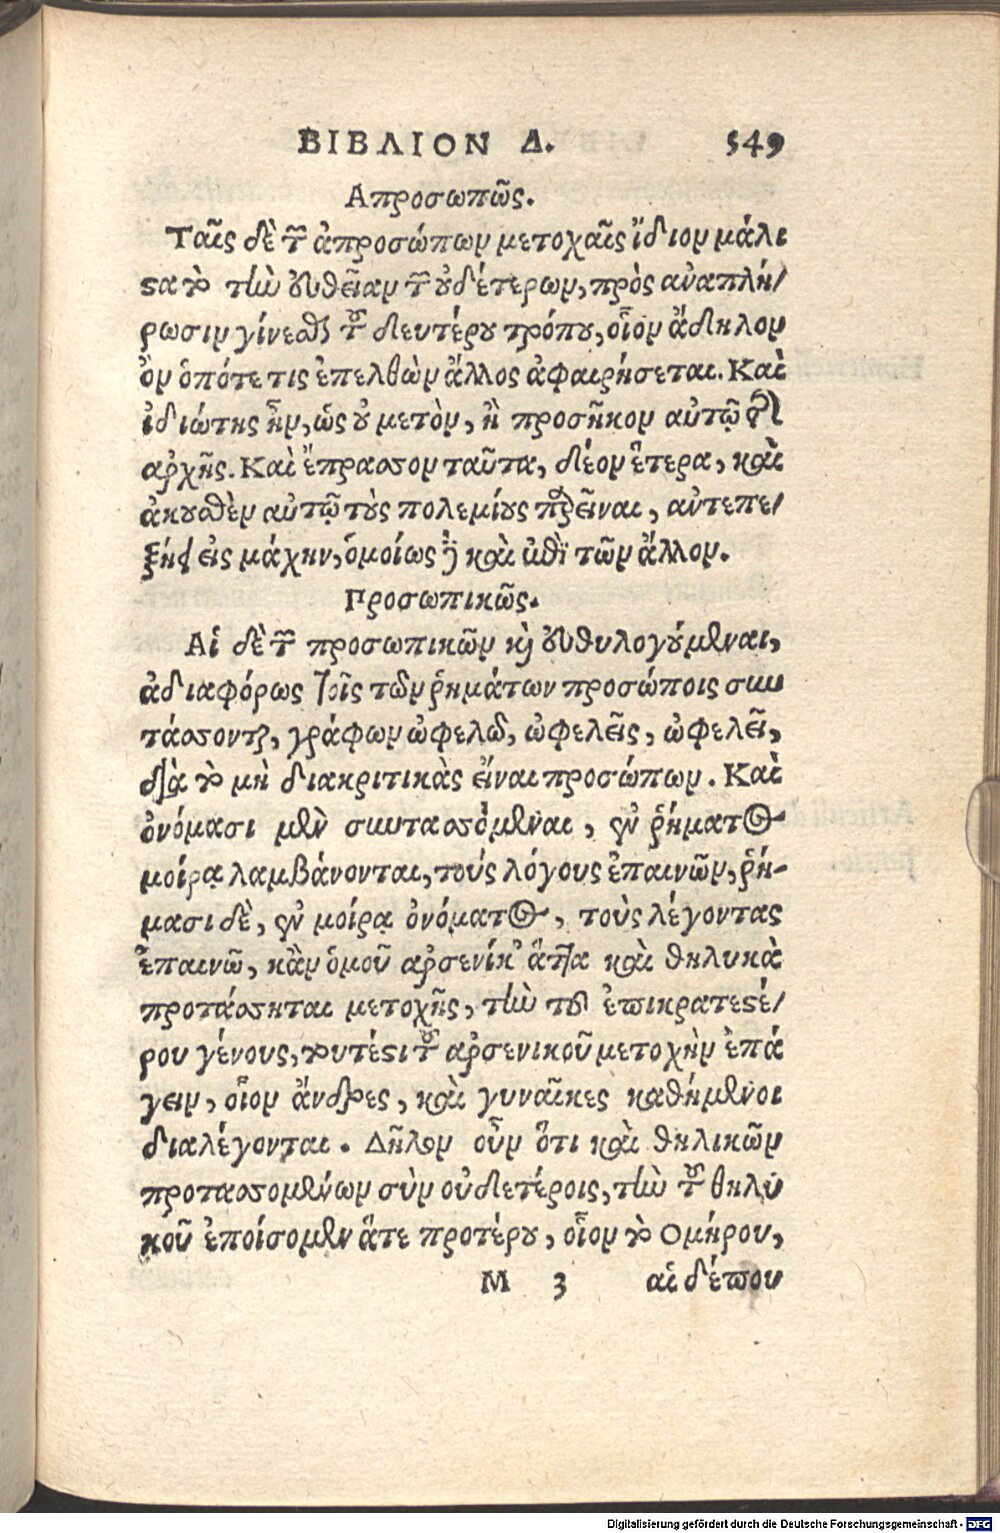 ΒΙΒΛΙΟΝ Δ. 549
Απροσωπῶς.
Ταῖς δὲ τῶν ἀπροσώπων μετοχαῖς ἴδιον μάλι
ϛα τὸ τὴν εὐθεῖαν τῶν οὐδέτερων, πρὸς αναπλή/
ρωσιν γίνεσθαι τοῦ δευτέρου τρόπου, οἷον ἄδηλον
ὂν ὁπότε τις ἐπελθὼν ἄλλος ἀφαιρήσεται. Καὶ
ἰδιώτης ἦν, ὡς οὐ μετὸν, ἢ προσῆκον αὐτῷ τῆς
αρχῆς. Καὶ ἔπρασσον ταῦτα, δέον ἕτερα, καὶ
ἀκουσθὲν αὐτῷ τοὺς πολεμίους προσιέναι, αὐτεπε/
ξήει εἰς μάχην, ὁμοίως ἢ καὶ ἐπὶ τῶν ἄλλον.
Προσωπικῶς.
Αἱ δὲ τῶν προσωπικῶν καὶ εὐθυλογούμεναι,
ἀδιαφόρως τοῖς τῶν ῥημάτων προσώποις συν
τάσσονται, γράφων ὠφελῶ, ὠφελεῖς, ὠφελεῖ,
διὰ τὸ μὴ διακριτικὰς εἶναι προσώπων. Καὶ
ὀνόμασι μὲν συντασσόμεναι, ἐν ῥήματος
μοίρᾳ λαμβάνονται, τοὺς λόγους ἐπαινῶν, ῥή-
μασι δὲ, ἐν μοίρᾳ ὀνόματος, τοὺς λέγοντας
ἐπαινῶ, κἂν ὁμοῦ αρσενικὰ ἅττα καὶ θηλυκὰ
προτάσσηται μετοχῆς, τὴν τοῦ ἐπικρατεϛέ/
ρου γένους, τουτέϛι τοῦ αρσενικοῦ μετοχὴν ἐπά
γειν, οἷον ἄνδρες, καὶ γυναῖκες καθήμενοι
διαλέγονται. Δῆλον οὖν ὅτι καὶ θηλικῶν
προτασσομένων σὺν οὐδετέροις, τὴν τοῦ θηλυ
κοῦ ἐποίσομεν ἅτε προτέρου, οἷον τὸ Ομήρου,
Μ 3 αἱ δέπου
Digitalisierung gefördert durch die Deutsche Forschungsgemeinschaft - DFG